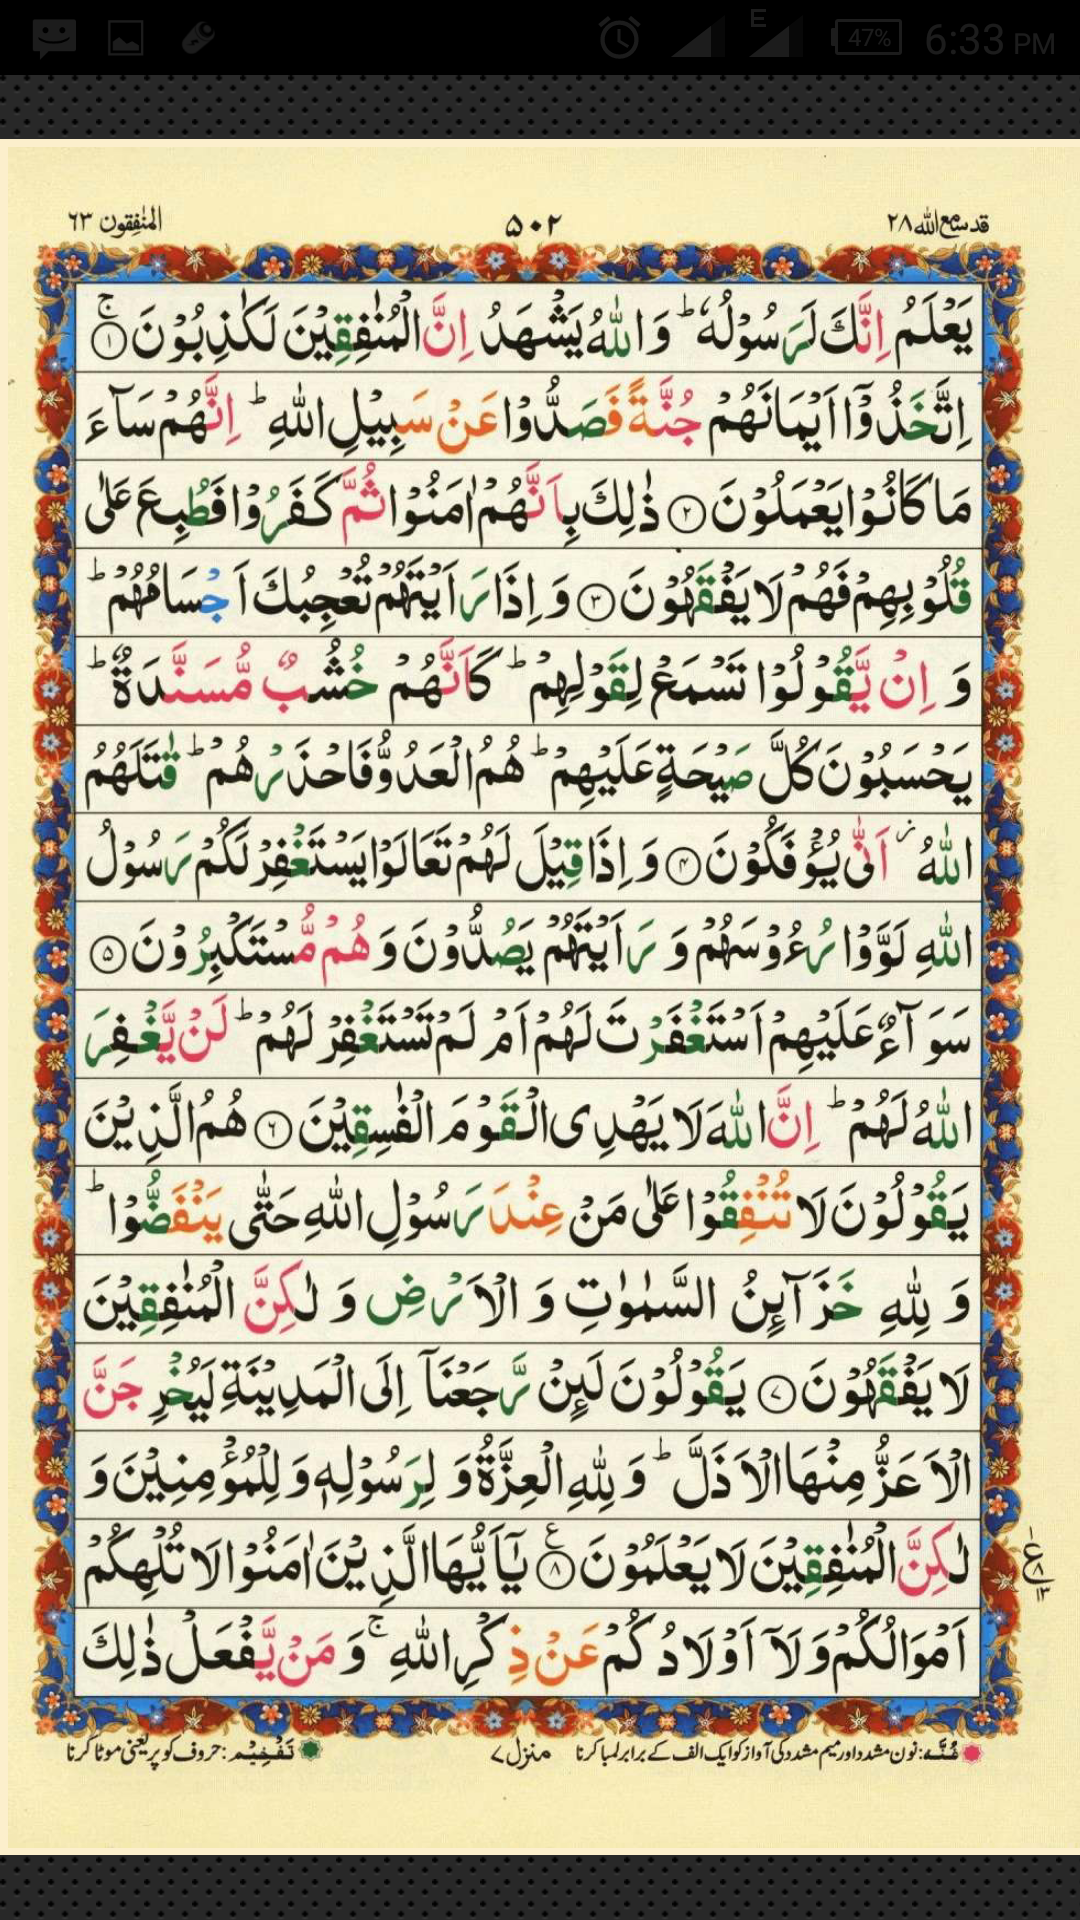 47% 6:33 PM
E
قد سمع الله ٢٨ ٥٠٢ المنٰفقون ٦٣
يَعْلَمُ اِنَّكَ لَرَسُوْلُهٗ ؕ وَ اللّٰهُ يَشْهَدُ اِنَّ الْمُنٰفِقِيْنَ لَكٰذِبُوْنَ ۚ‏﴿۱﴾
اِتَّخَذُوْۤا اَيْمَانَهُمْ جُنَّةً فَصَدُّوْا عَنْ سَبِيْلِ اللّٰهِ ؕ اِنَّهُمْ سَآءَ
مَا كَانُوْا يَعْمَلُوْنَ ﴿۲﴾ ذٰلِكَ بِاَنَّهُمْ اٰمَنُوْا ثُمَّ كَفَرُوْا فَطُبِعَ عَلٰى
قُلُوْبِهِمْ فَهُمْ لَا يَفْقَهُوْنَ ﴿۳﴾ وَ اِذَا رَاَيْتَهُمْ تُعْجِبُكَ اَجْسَامُهُمْ ؕ
وَ اِنْ يَّقُوْلُوْا تَسْمَعْ لِقَوْلِهِمْ ؕ كَاَنَّهُمْ خُشُبٌ مُّسَنَّدَةٌ ؕ
يَحْسَبُوْنَ كُلَّ صَيْحَةٍ عَلَيْهِمْ ؕ هُمُ الْعَدُوُّ فَاحْذَرْهُمْ ؕ قٰتَلَهُمُ
اللّٰهُ ؗ اَنّٰى يُؤْفَكُوْنَ ﴿۴﴾ وَ اِذَا قِيْلَ لَهُمْ تَعَالَوْا يَسْتَغْفِرْ لَكُمْ رَسُوْلُ
اللّٰهِ لَوَّوْا رُءُوْسَهُمْ وَ رَاَيْتَهُمْ يَصُدُّوْنَ وَ هُمْ مُّسْتَكْبِرُوْنَ ﴿۵﴾
سَوَآءٌ عَلَيْهِمْ اَسْتَغْفَرْتَ لَهُمْ اَمْ لَمْ تَسْتَغْفِرْ لَهُمْ ؕ لَنْ يَّغْفِرَ
اللّٰهُ لَهُمْ ؕ اِنَّ اللّٰهَ لَا يَهْدِى الْقَوْمَ الْفٰسِقِيْنَ ﴿۶﴾ هُمُ الَّذِيْنَ
يَقُوْلُوْنَ لَا تُنْفِقُوْا عَلٰى مَنْ عِنْدَ رَسُوْلِ اللّٰهِ حَتّٰى يَنْفَضُّوْا ؕ
وَ لِلّٰهِ خَزَآئِنُ السَّمٰوٰتِ وَ الْاَرْضِ وَ لٰكِنَّ الْمُنٰفِقِيْنَ
لَا يَفْقَهُوْنَ ﴿۷﴾ يَقُوْلُوْنَ لَئِنْ رَّجَعْنَاۤ اِلَى الْمَدِيْنَةِ لَيُخْرِجَنَّ
الْاَعَزُّ مِنْهَا الْاَذَلَّ ؕ وَ لِلّٰهِ الْعِزَّةُ وَ لِرَسُوْلِهٖ وَ لِلْمُؤْمِنِيْنَ وَ
لٰكِنَّ الْمُنٰفِقِيْنَ لَا يَعْلَمُوْنَ ﴿۸﴾ۧ يٰۤاَيُّهَا الَّذِيْنَ اٰمَنُوْا لَا تُلْهِكُمْ
ع ٨ ١٣
اَمْوَالُكُمْ وَ لَاۤ اَوْلَادُكُمْ عَنْ ذِكْرِ اللّٰهِ ۚ وَ مَنْ يَّفْعَلْ ذٰلِكَ
غُنَّه: نون مشدد اور میم مشدد کی آواز کو ایک الف کے برابر لمبا کرنا منزل ٧ تَفْخِیْم: حروف کو پر یعنی موٹا کرنا